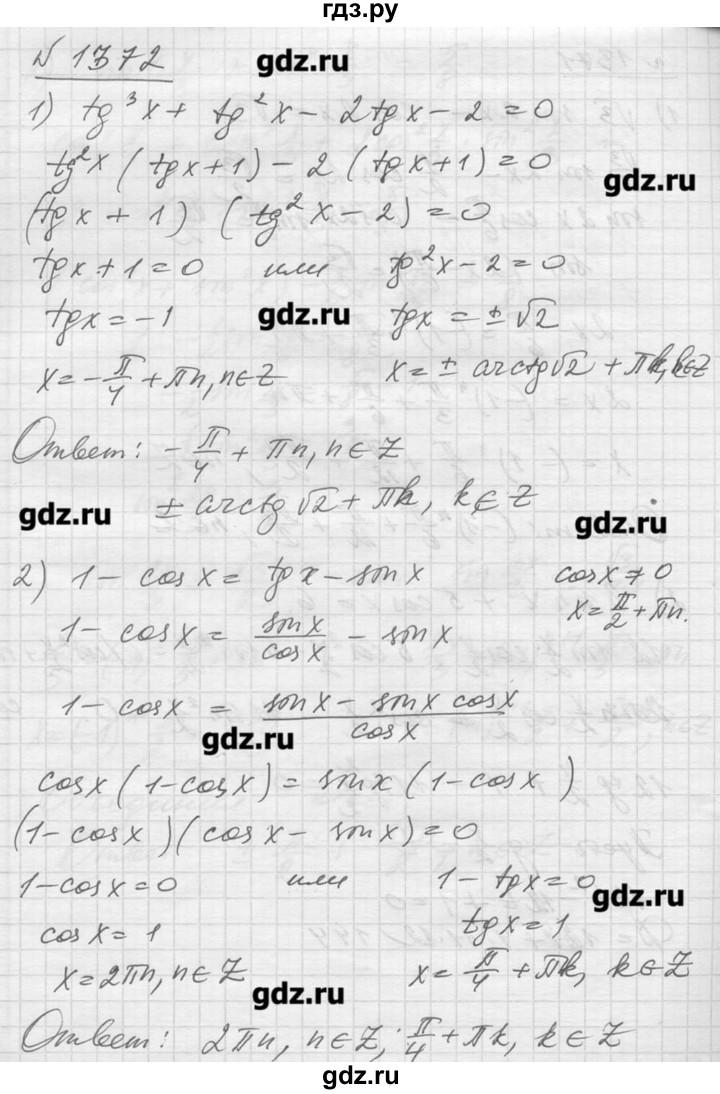 гдз.ру
№ 1372
gdz.ru
1) tg³x + tg²x - 2tgx - 2 = 0
tg²x (tgx+1) - 2 (tgx+1) = 0
gdz.ru
(tgx + 1) (tg²x - 2) = 0
tgx + 1 = 0 или tg²x - 2 = 0
tgx = -1 gdz.ru tgx = ± √2
x = -π/4 + πn, n∈Z x = ± arctg√2 + πk, k∈Z
Ответ: -π/4 + πn, n∈Z
± arctg √2 + πk, k∈Z
gdz.ru gdz.ru
2) 1 - cosx = tgx - sinx cosx ≠ 0
1 - cosx = sinx/cosx - sinx x = π/2 + πn.
1 - cosx = (sinx - sinx cosx)/cosx
gdz.ru
cosx (1-cosx) = sinx (1-cosx)
(1-cosx)(cosx - sinx) = 0
1-cosx = 0 или 1 - tgx = 0
gdz.ru
cosx = 1 tgx = 1
x = 2πn, n∈Z x = π/4 + πk, k∈Z
gdz.ru
Ответ: 2πn, n∈Z; π/4 + πk, k∈Z
gdz.ru